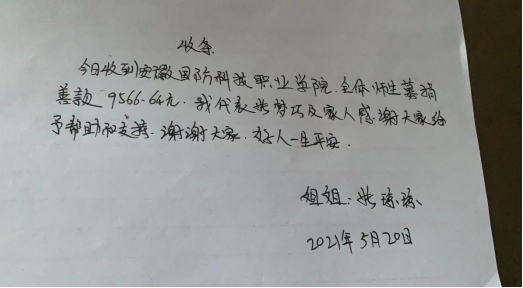 收条
今日收到安徽国防科技职业学院.全体师生募捐
善款9566.64元.我代表张梦巧及家人感谢大家给
予帮助和支持.谢谢大家.好人一生平安.
姐姐:张琼琼
2021年5月20日